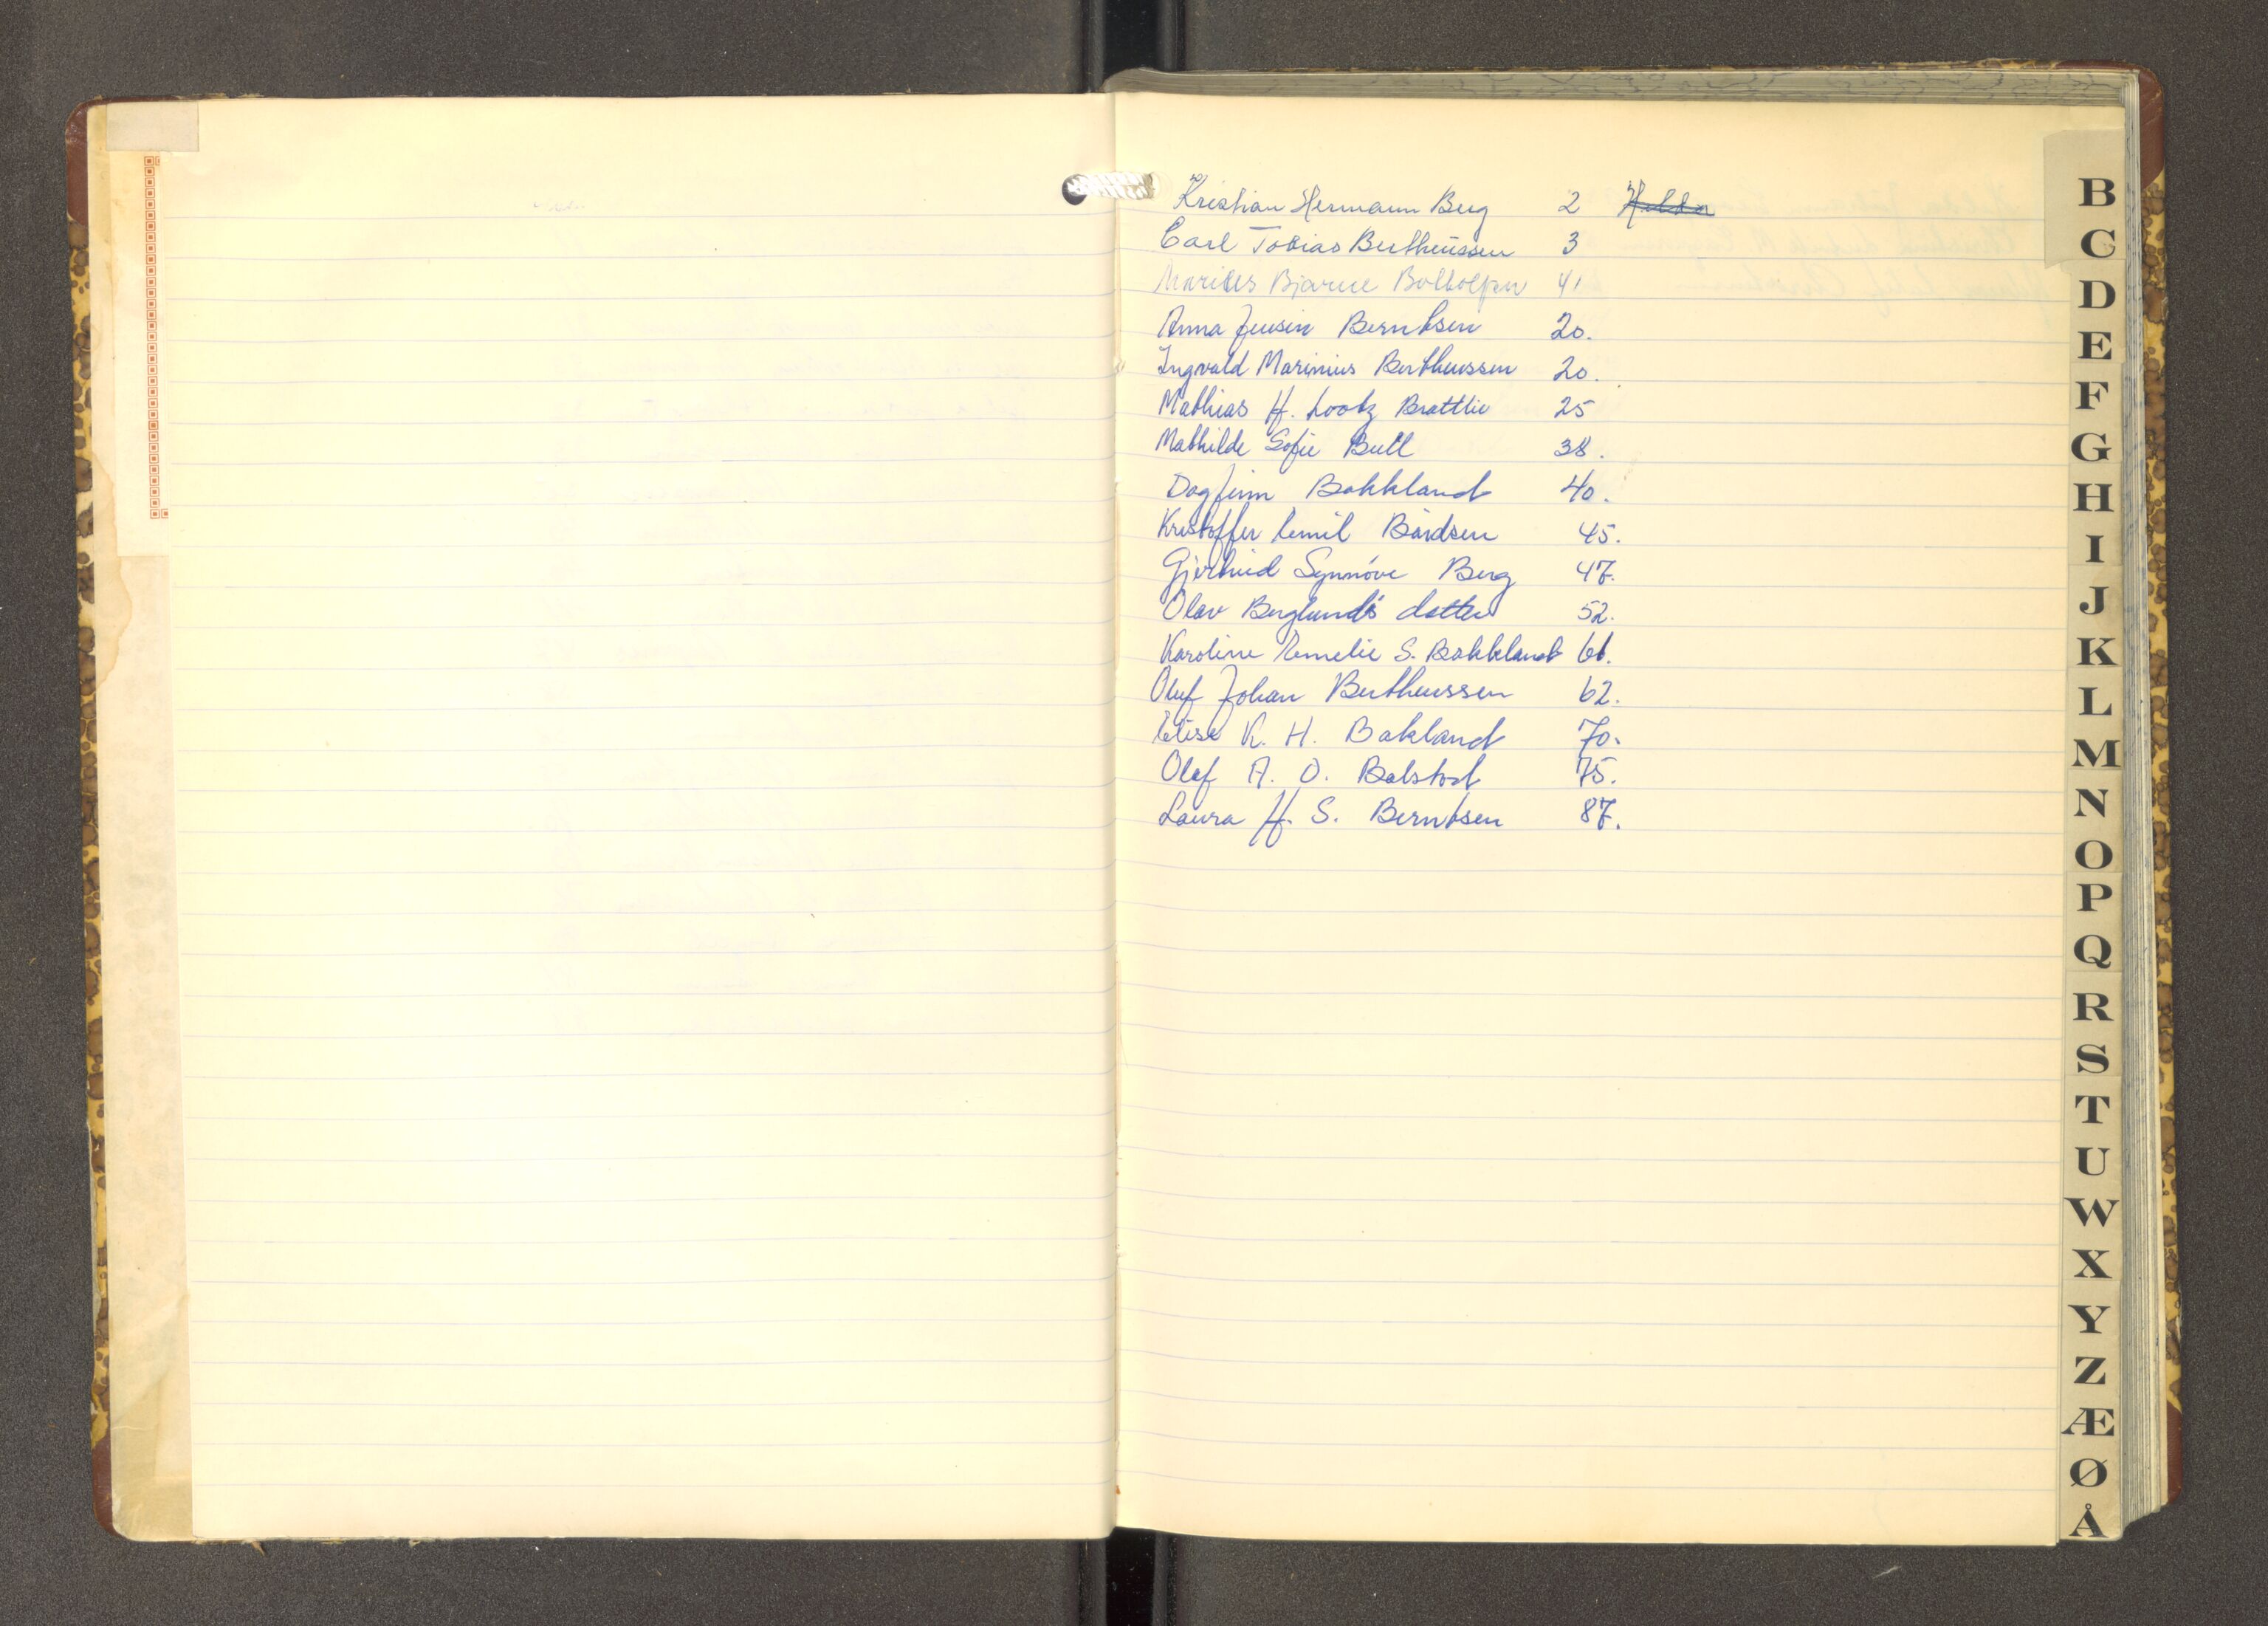 Kristian Hermann Berg 2 Hilda
Carl Tobias Bertheussen 3
Bjarne 41
Anna Jensin Berntsen 20.
Ingvald Marinius Bertheussen 20.
Mathias H. Lootz Brattlie 25
Mathilde Sofie Bull 38.
Dagfinn Bakkland 40.
Kristoffer Emil Bårdsen 45.
Gjertrud Synnöve Berg 47.
Olav Berglund's datter 52.
Karoline Emelie S. Bakkland 61.
Oluf Johan Bertheussen 62.
Elise K. H. Bakland 70.
Olaf A. O. Balstad 75.
Laura H. S. Berntsen 87.
B
C
D
E
F
G
H
I
J
K
L
M
N
O
P
Q
R
S
T
U
W
X
Y
Z
Æ
Ø
Å